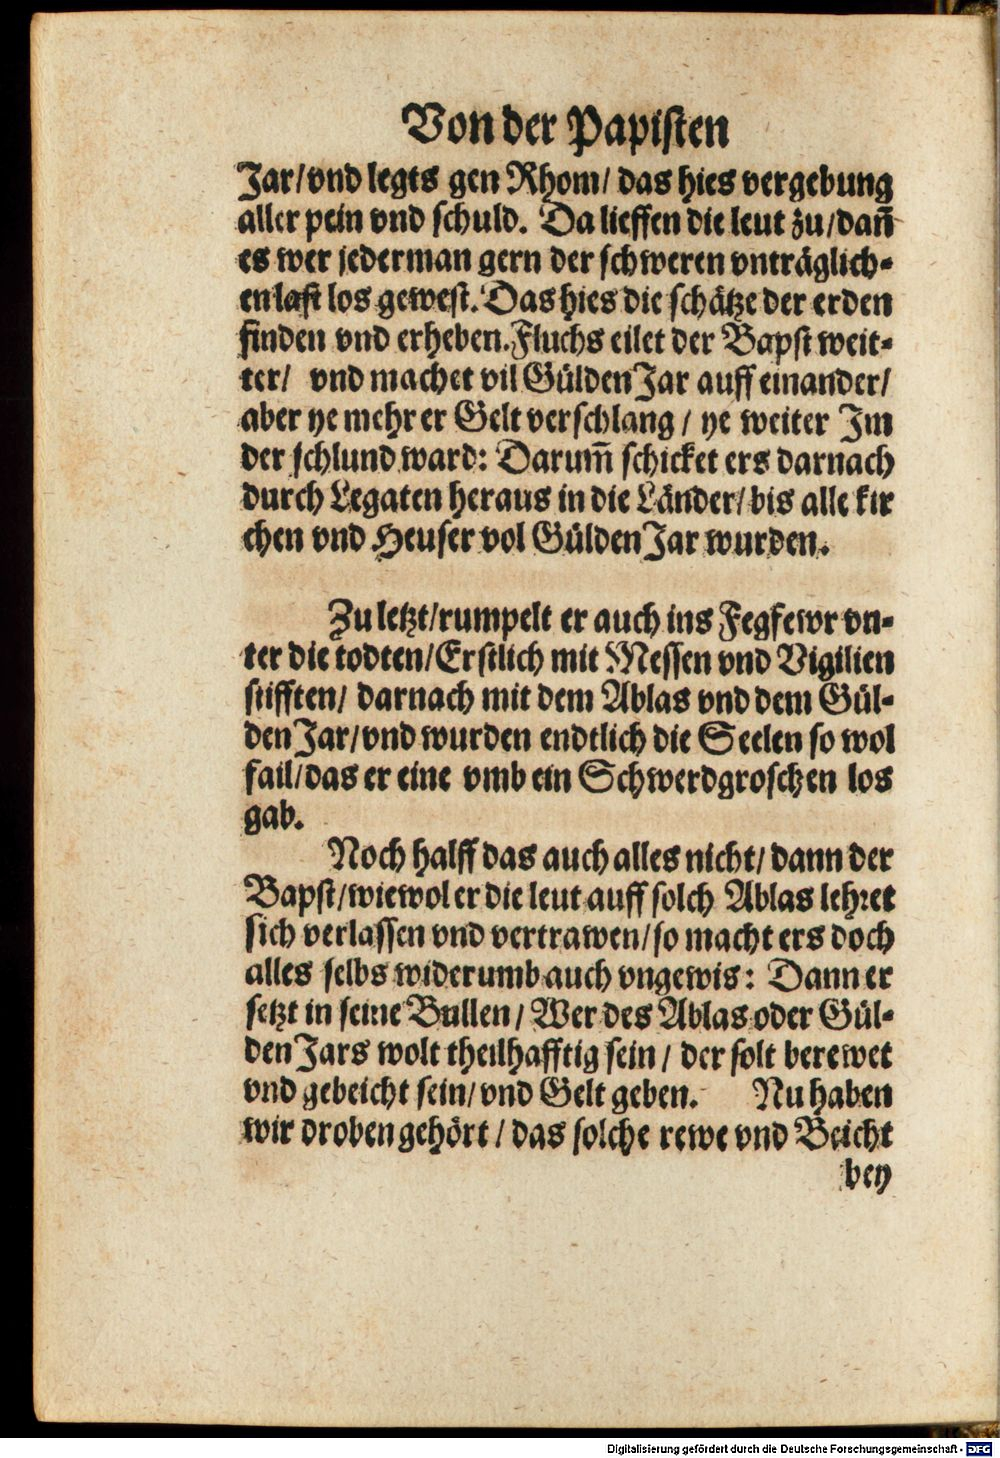 Von der Papisten
Jar/vnd legts gen Rhom/ das hies vergebung
aller pein vnd schuld. Da lieffen die leut zu/dañ
es wer jederman gern der schweren vnträglich-
en last los gewest. Das hies die schätze der erden
finden vnd erheben. Fluchs eilet der Bapst weit-
ter/ vnd machet vil Gülden Jar auff einander/
aber ye mehr er Gelt verschlang / ye weiter Im
der schlund ward: Darum̃ schicket ers darnach
durch Legaten heraus in die Länder/bis alle kir
chen vnd Heuser vol Gülden Jar wurden.
Zu letzt/rumpelt er auch ins Fegfewr vn-
ter die todten/Erstlich mit Messen vnd Vigilien
stifften/ darnach mit dem Ablas vnd dem Gül-
den Jar/vnd wurden endtlich die Seelen so wol
fail/das er eine vmb ein Schwerdgroschen los
gab.
Noch halff das auch alles nicht/ dann der
Bapst/wiewol er die leut auff solch Ablas lehret
sich verlassen vnd vertrawen/so macht ers doch
alles selbs widerumb auch vngewis: Dann er
setzt in seine Bullen / Wer des Ablas oder Gül-
den Jars wolt theilhafftig sein / der solt berewet
vnd gebeicht sein/vnd Gelt geben. Nu haben
wir droben gehört / das solche rewe vnd Beicht
bey
Digitalisierung gefördert durch die Deutsche Forschungsgemeinschaft - DFG